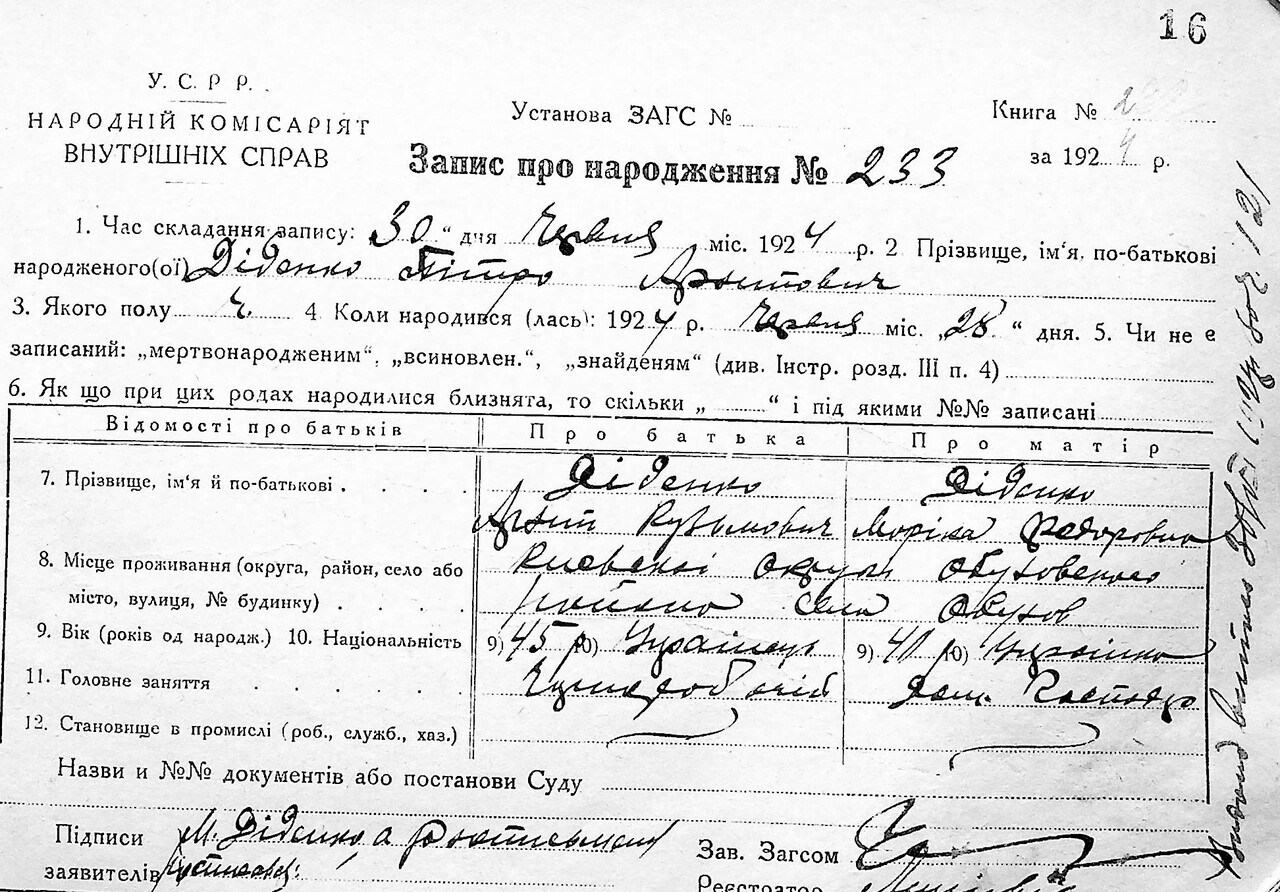 16
У. С. Р Р.
НАРОДНІЙ КОМІСАРІЯТ
ВНУТРІШНІХ СПРАВ
Установа ЗАГС №
Книга № 2
за 1924 р.
Запис про народження № 233
1. Час складання запису: 30 „ дня Червня міс. 1924 р. 2 Прізвище, ім‘я, по-батькові
народженого(ої) Діденко Пітро
3. Якого полу ч. 4 Коли народився (лась): 1924 р. Червня міс. „28“ дня. 5. Чи не є
записаний: „мертвонародженим“, „всиновлен.“, „знайденям“ (див. Інстр. розд. III п. 4)
6. Як що при цих родах народилися близнята, то скільки „ “ і під якими №№ записані
Відомості про батьків Про батька Про матір
7. Прізвище, ім‘я й по-батькові . . . . Діденко Діденко
Кузьмович Федоровна
8. Місце проживання (округа, район, село або Киевскої округи Обуховского
місто, вулиця, № будинку) . . . . района села Обухов
9. Вік (років од народж.) 10. Національність 9) 45 р 10) Українець 9) 40 р 10) Українка
11. Головне заняття . . . . .
12. Становище в промислі (роб., служб., хаз.)
Назви и №№ документів або постанови Суду
Підписи М. Діденко а
заявителів
Зав. Загсом
Реєстратор